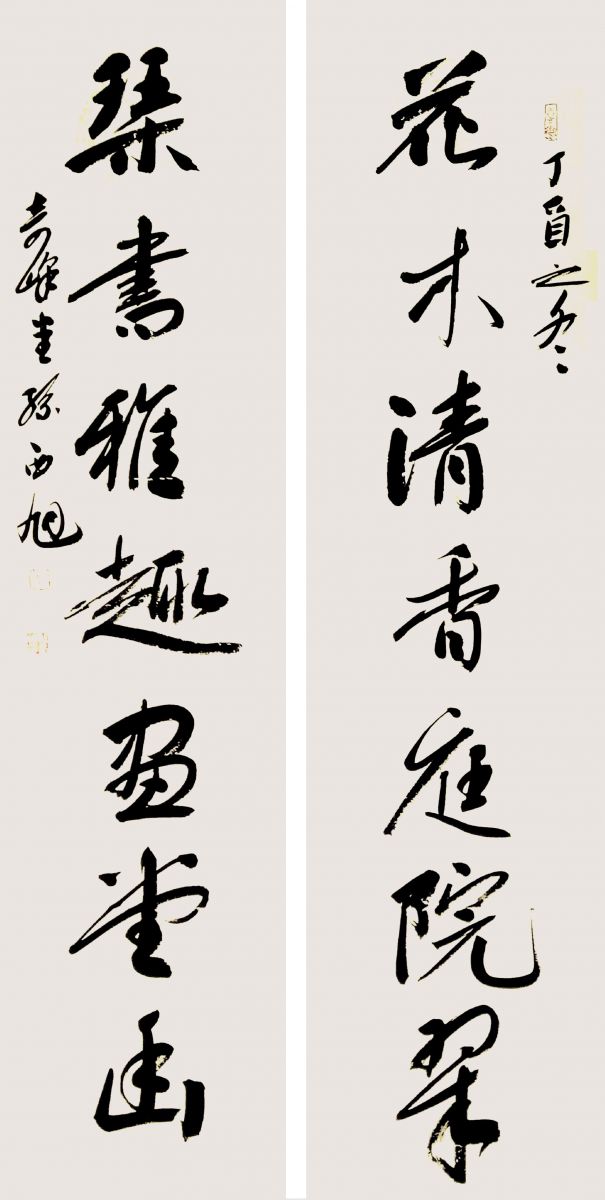 丁酉之冬
花木清香庭院翠
琴書雅趣畫堂幽
峰堂孫西旭